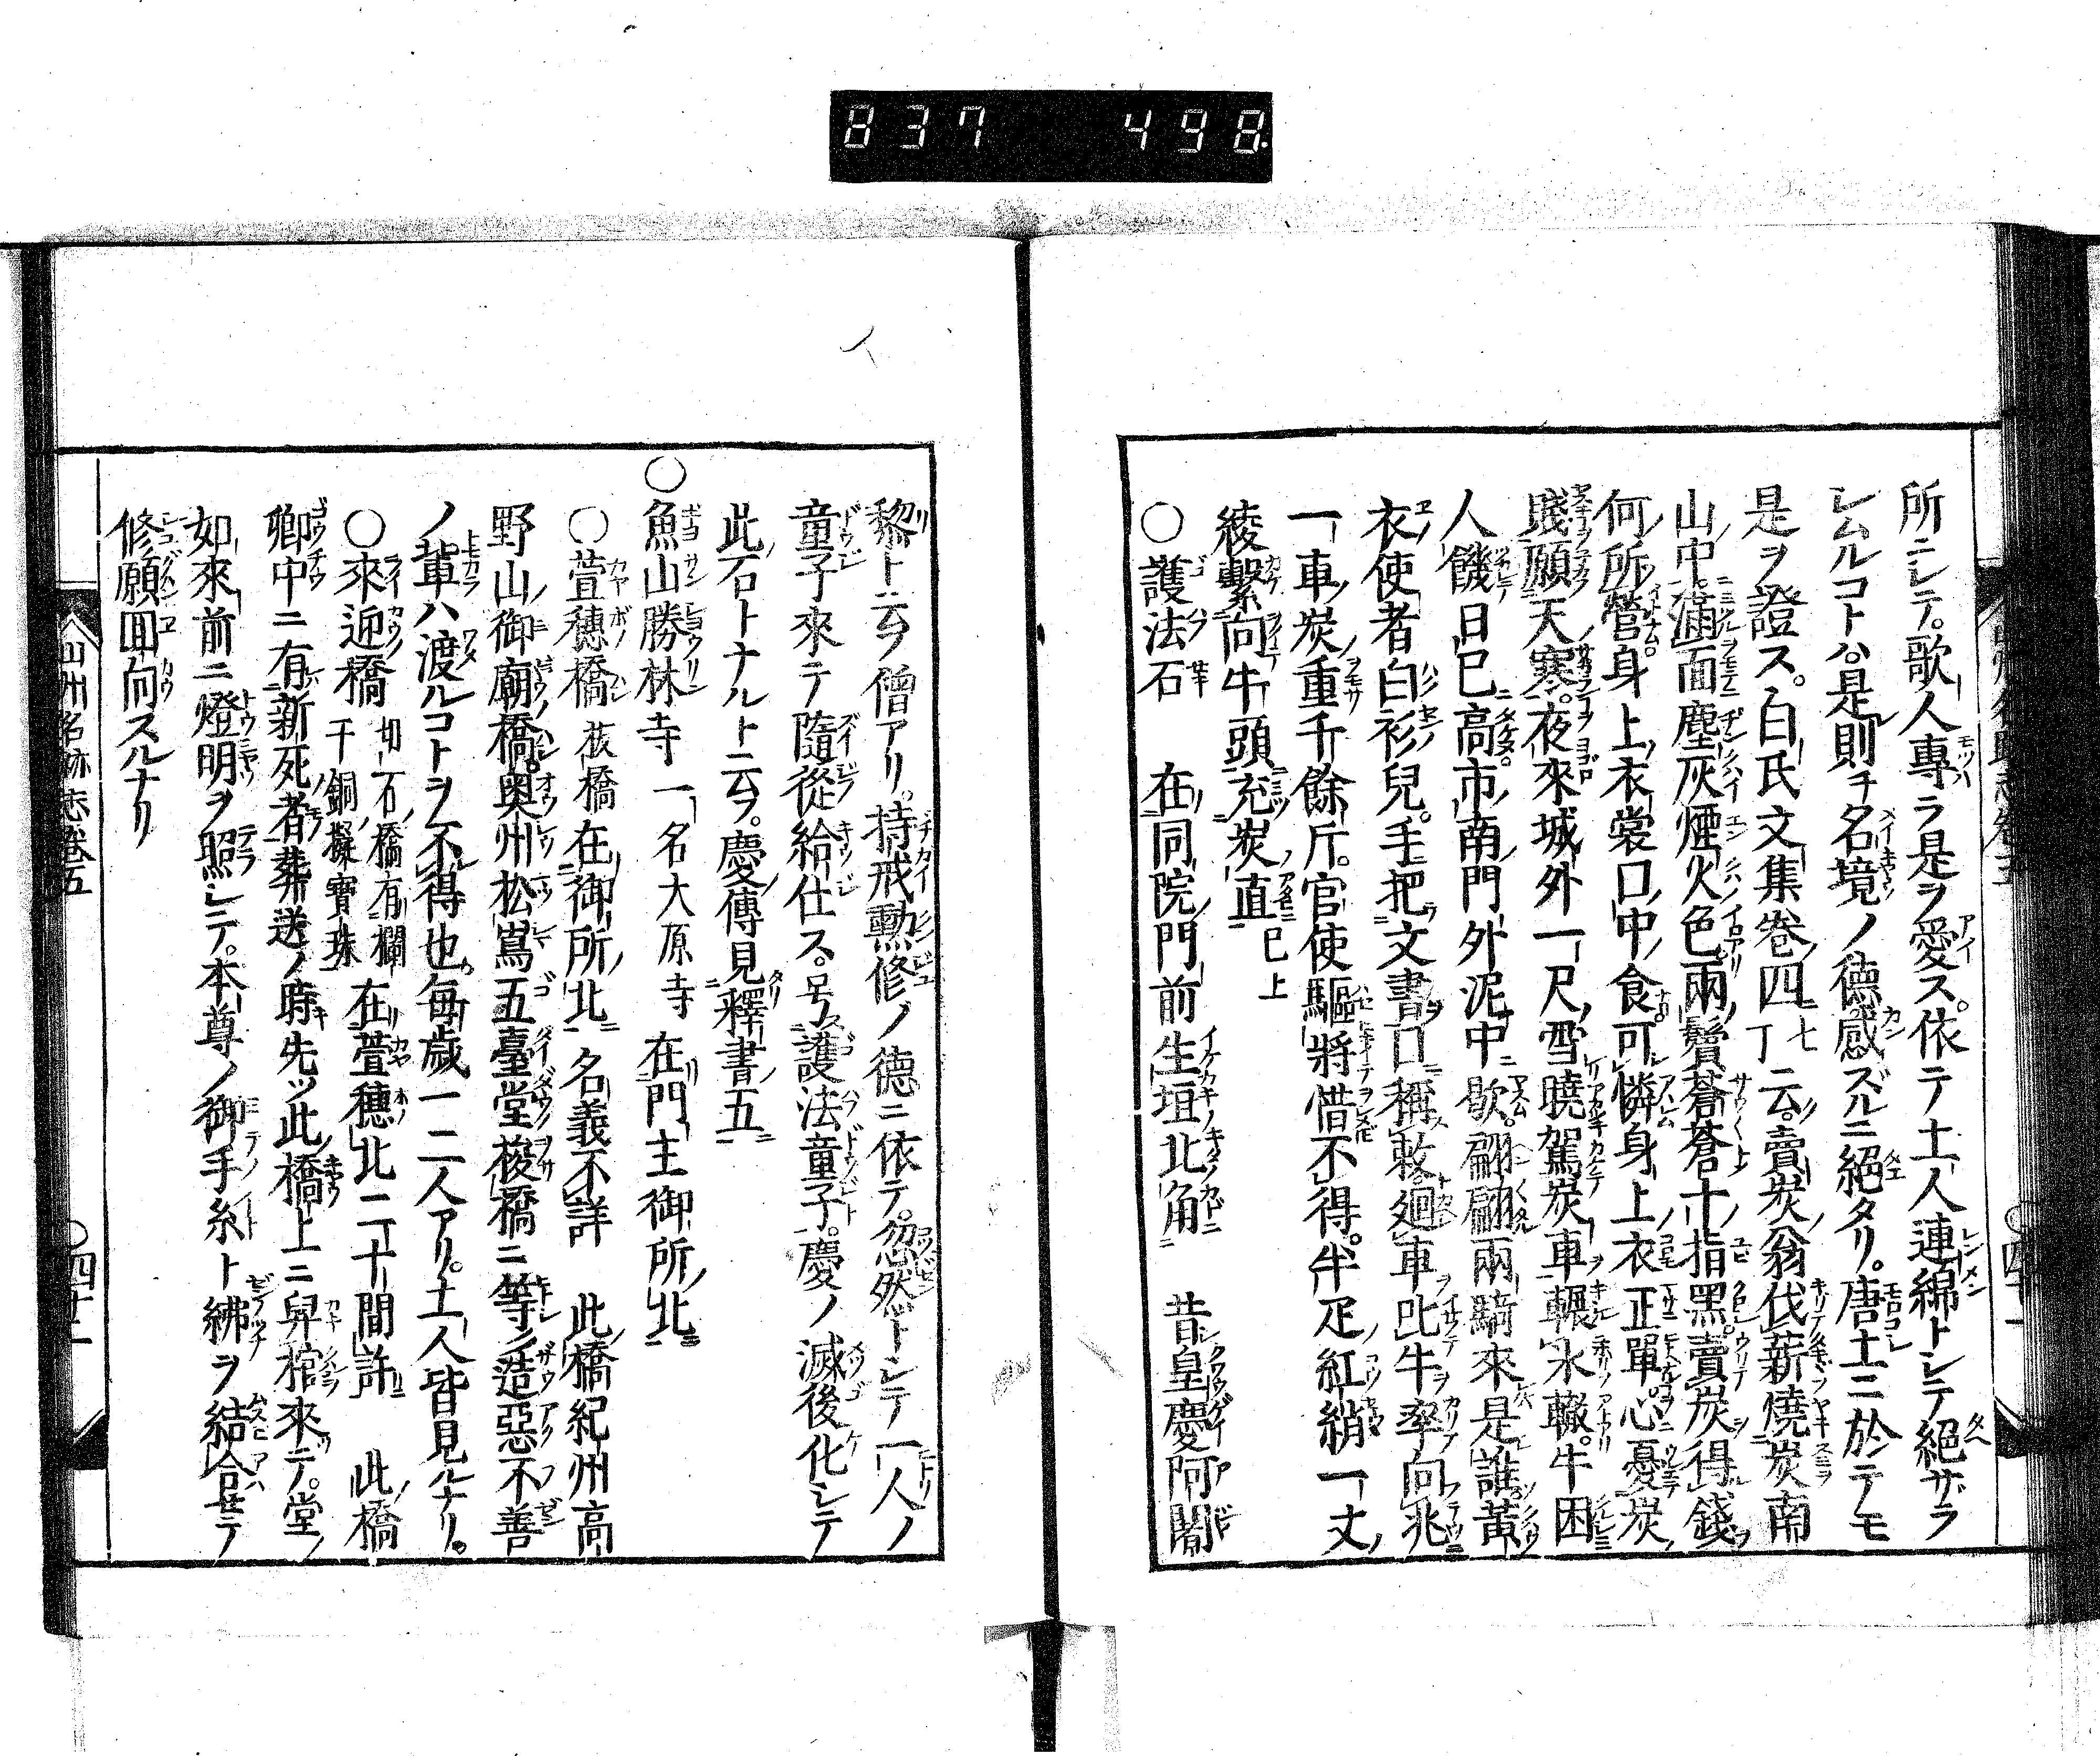 837 498
所ニシテ。歌人專ラ是ヲ愛ス。依テ土人連綿トシテ絕サラ
シムルコトハ。是則チ名境ノ德感ズルニ絕タリ。唐土ニ於テモ
是ヲ證ス。白氏文集卷四七丁云。賣炭翁伐薪燒炭南
山中。滿面塵灰煙火色。兩鬢蒼蒼十指黑。賣炭得錢
何所營。身上衣裳口中食。可憐身上衣正單。心憂炭
賤願天寒。夜來城外一尺雪。曉駕炭車輾氷轍。牛困
人饑日已高。市南門外泥中歇。翩翩兩騎來是誰。黃
衣使者白衫兒。手把文書口稱敕。迴車叱牛牽向北
一車炭重千餘斤。官使驅將惜不得。半疋紅綃一丈
綾。繫向牛頭充炭直 已上
○護法石 在同院門前生垣北角 昔皇慶阿闍
黎ト云フ僧アリ。持戒勲修ノ德ニ依テ。忽然トシテ一人ノ
童子來テ隨從給仕ス。号護法童子。慶ノ滅後化シテ
此石トナルト云フ。慶傳見釋書五
○魚山勝林寺 一名大原寺 在門主御所北
○萱穗橋 板橋 在御所北 名義不詳 此橋紀州高
野山御廟橋。奥州松嶌五臺堂梭橋ニ等シ造惡不善
ノ輩ハ渡ルコトヲ不得也。每歳一二人アリ。土人皆見ルナリ。
○來迎橋 切石橋有欄干銅擬寶珠 在萱穗北二十間許 此橋
郷中ニ有新死者葬送ノ時先ツ此橋上ニ舁棺來テ。堂ノ
如來前ニ燈明ヲ照シテ。本尊ノ御手糸ト紼ヲ結合セテ
修願回向スルナリ
山州名跡志卷五
四十二